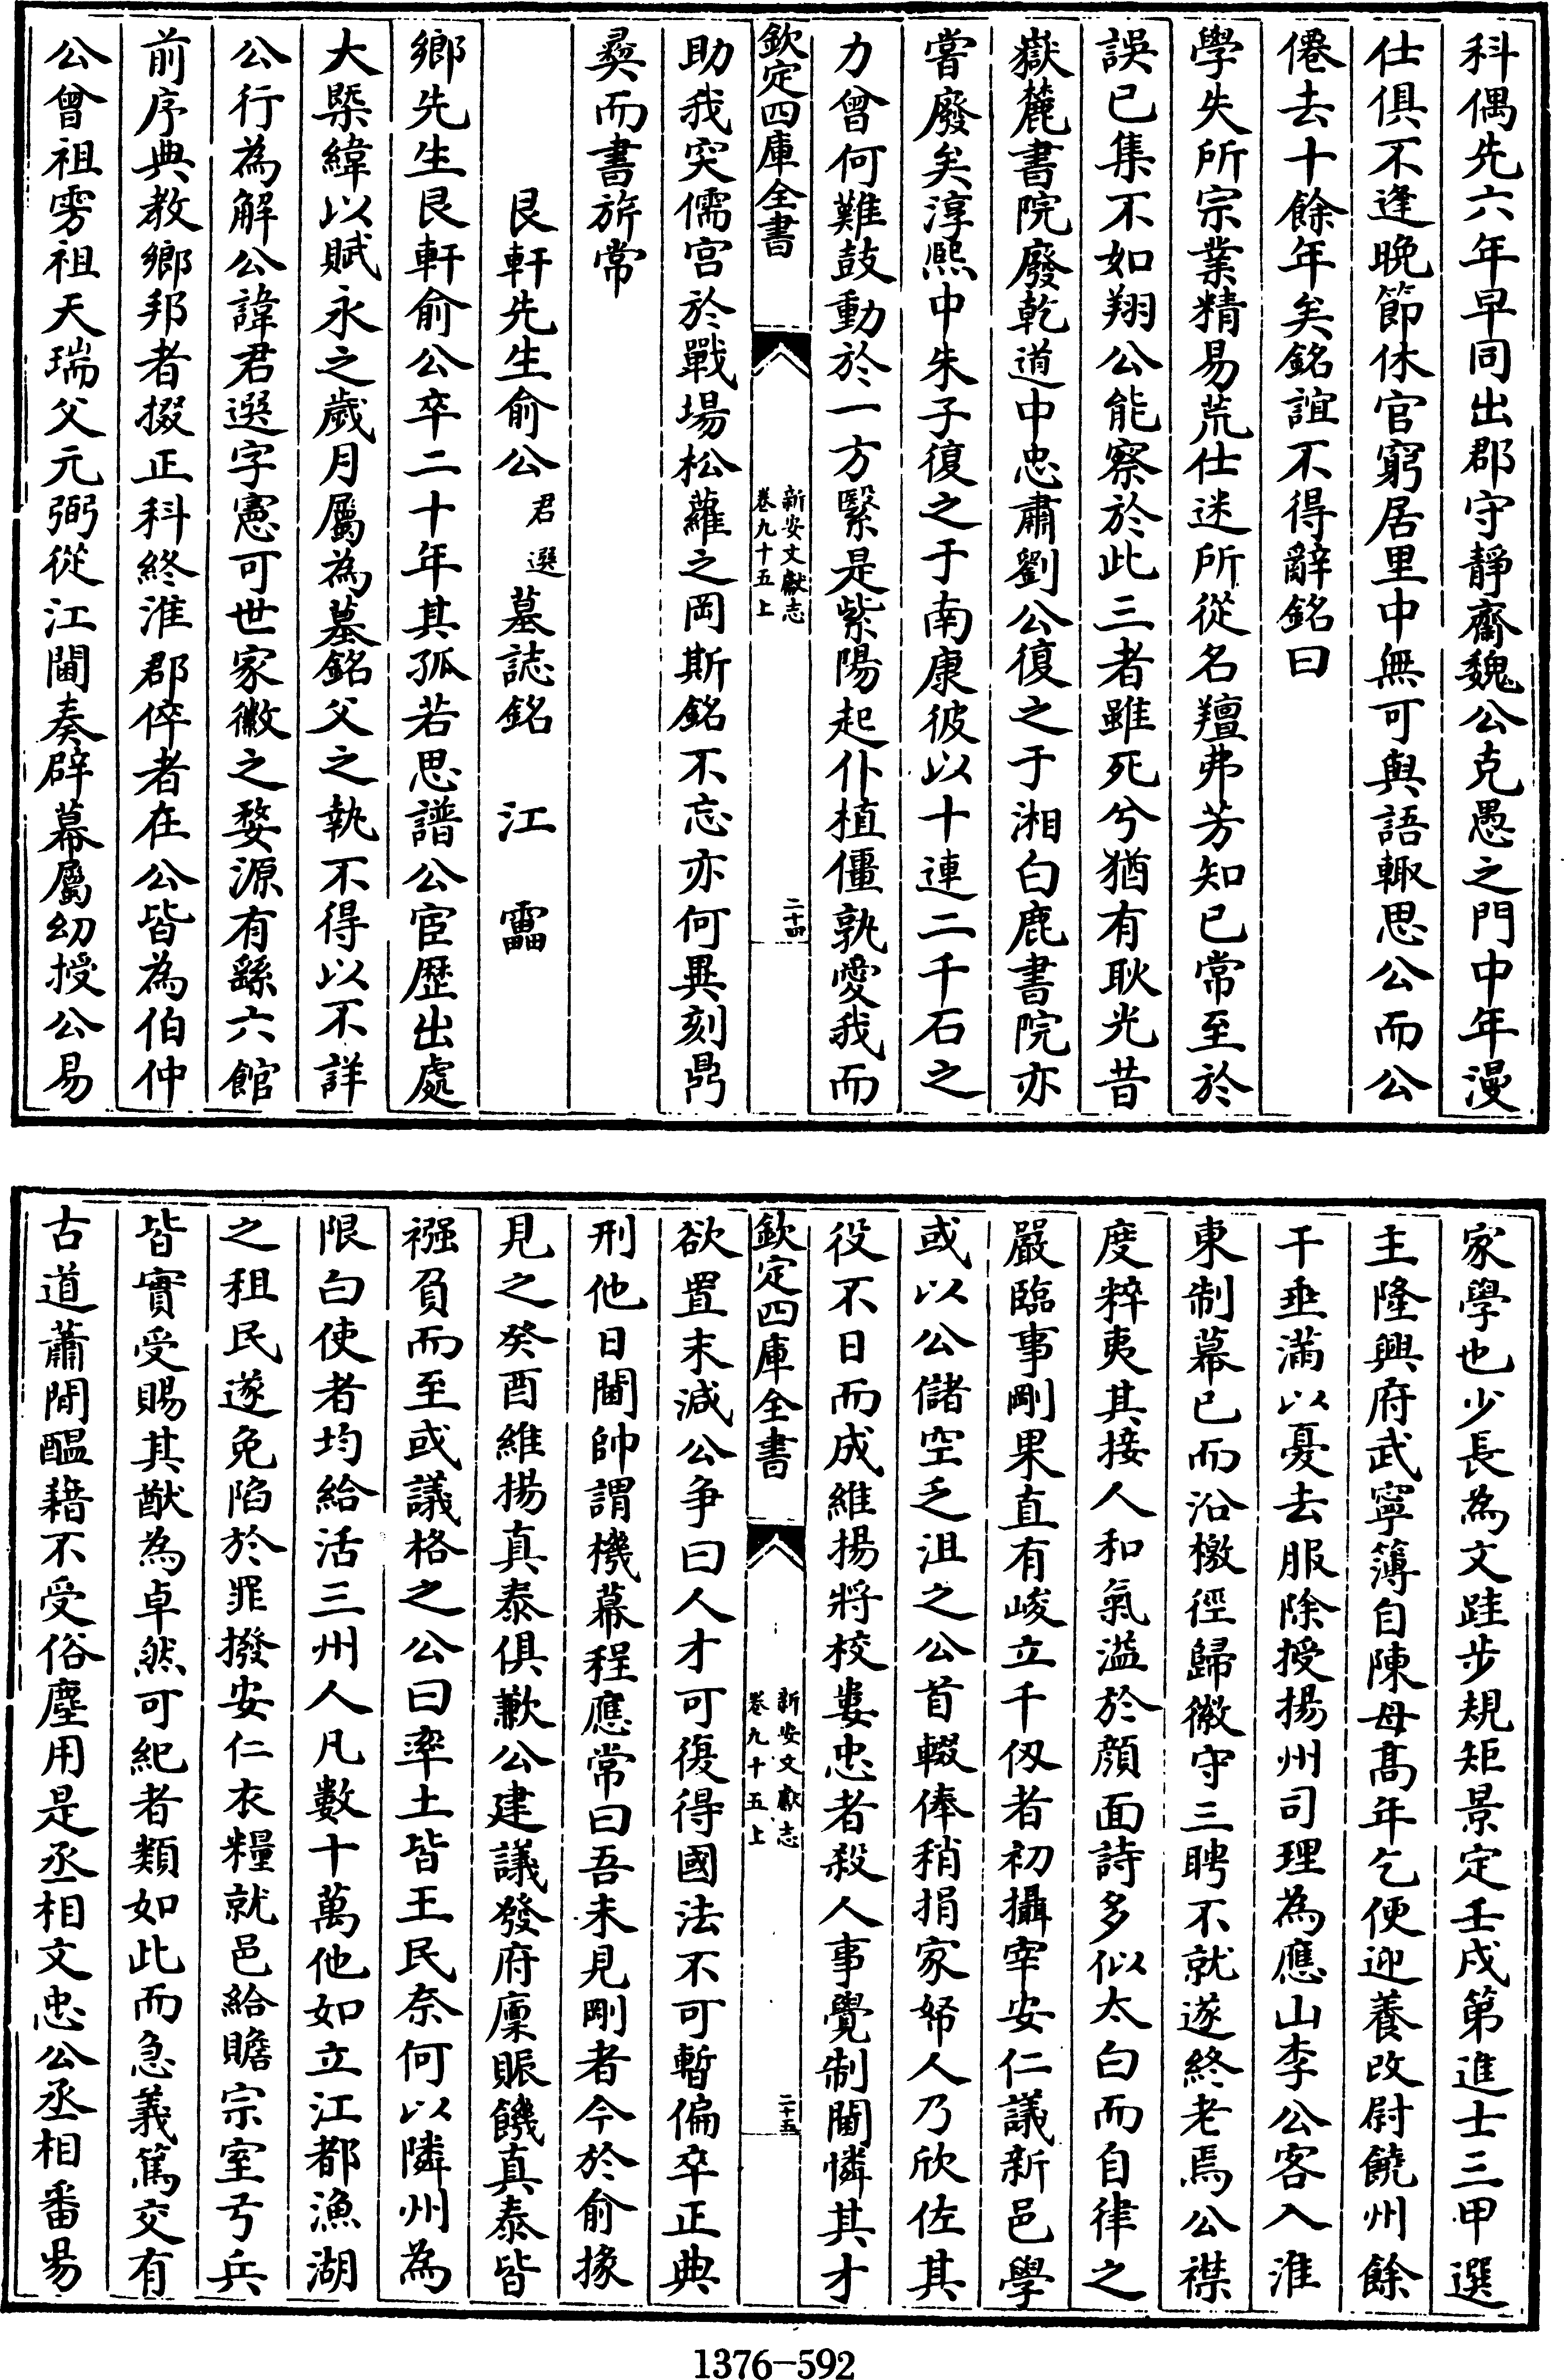 科偶先六年早同出郡守靜齋魏公克愚之門中年漫
仕俱不逢晚節休官窮居里中無可與語輙思公而公
僊去十餘年矣銘誼不得辭銘曰
學失所宗業精易荒仕迷所從名羶弗芳知已常至於
誤已集不如翔公能察於此三者雖死兮猶有耿光昔
嶽麓書院廢乾道中忠肅劉公復之于湘白鹿書院亦
嘗廢矣淳熙中朱子復之于南康彼以十連二千石之
力曾何難鼓動於一方繄是紫陽起仆植僵孰愛我而
欽定四庫全書
新安文獻志
卷九十五上
二十四
助我突儒宮於戰場松蘿之岡斯銘不忘亦何異刻鼎
彛而書旂常
艮軒先生俞公君選墓誌銘 江 靁
鄉先生艮軒俞公卒二十年其孤若思譜公宦歷出處
大槩緯以賦永之歲月屬為墓銘父之執不得以不詳
公行為解公諱君選字憲可世家徽之婺源有繇六館
前序典教鄉邦者掇正科終淮郡倅者在公皆為伯仲
公曾祖雱祖天瑞父元弼從江閫奏辟幕屬幼授公易
家學也少長為文跬步規矩景定壬戌第進士三甲選
主隆興府武寧簿自陳母髙年乞便迎養改尉饒州餘
干垂滿以憂去服除授揚州司理為應山李公客入淮
東制幕已而沿檄徑歸徽守三聘不就遂終老焉公襟
度粹夷其接人和氣溢於顔面詩多似太白而自律之
嚴臨事剛果直有峻立千仭者初攝宰安仁議新邑學
或以公儲空乏沮之公首輟俸稍捐家帑人乃欣佐其
役不日而成維揚將校婁忠者殺人事覺制閫憐其才
欽定四庫全書
新安文獻志
卷九十五上
二十五
欲置末減公争曰人才可復得國法不可暫偏卒正典
刑他日閫帥謂機幕程應常曰吾未見剛者今於俞掾
見之癸酉維揚真泰俱歉公建議發府廪賑饑真泰皆
襁負而至或議格之公曰率土皆王民奈何以隣州為
限白使者均給活三州人凡數十萬他如立江都漁湖
之租民遂免陷於罪撥安仁衣糧就邑給贍宗室弓兵
皆實受賜其猷為卓然可紀者類如此而急義篤交有
古道蕭閒醖藉不受俗塵用是丞相文忠公丞相番昜
1376-592